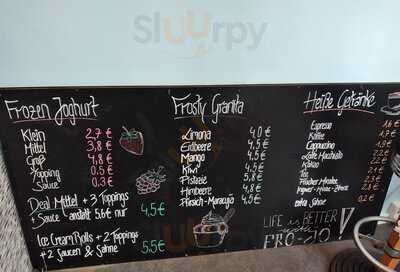 Sluurpy
Frozen Joghurt
Klein 2,7 €
Mittel 3,8 €
Groß 4,8 €
Topping 0.5 €
Sauce 0.3 €
Deal Mittel + 3 Toppings
1 Sauce anstatt 5.6€ nur 4,5€
Ice Cream Rolls + 2 Toppings
+ 2 Saucen & Sahne 5,5€
Frosty Granita
Limona 4,0 €
Erdbeere 4.5 €
Mango 4.5 €
Kiwi 4.5 €
Pistazie 5,8 €
Himbeere 4.5 €
Pfirsich-Maracuja
Heiße Getränke
Espresso
Kaffee
Cappuccino
Latte Macchiato
Kakao
Tee
Frischer
extra Sahne 0.2 €
LIFE is BETTER
WITH
FRO-ZO!